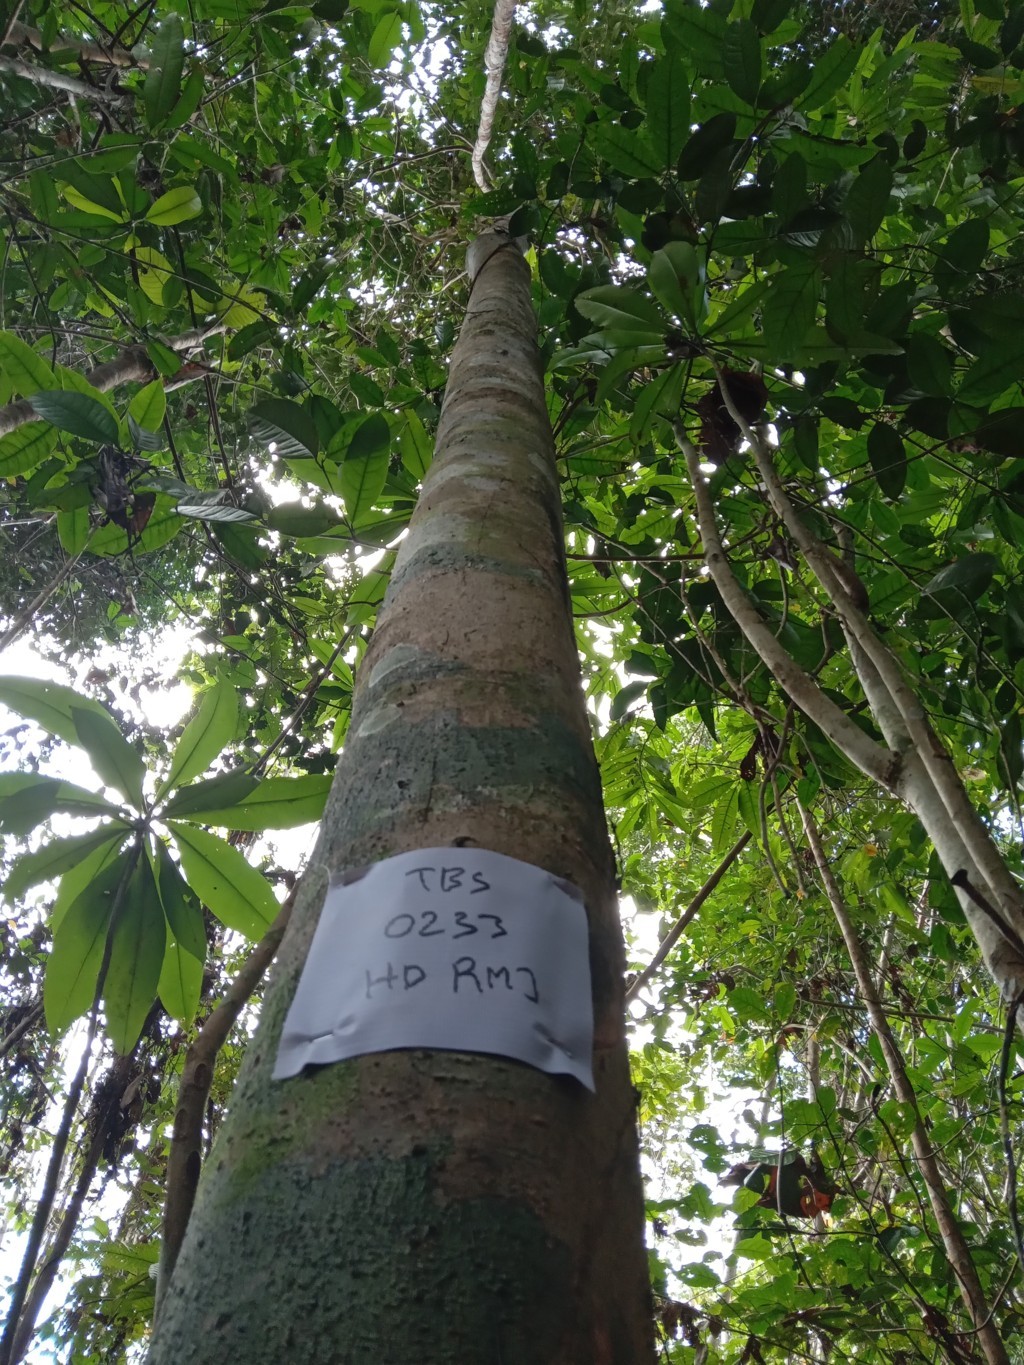 TBS
0233
HD RMJ